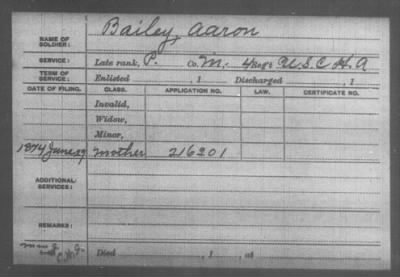 NAME OF SOLDIER: Bailey, Aaron
SERVICE: Late rank, P. Co. M, 4 Reg't U.S.C.H.A
TERM OF SERVICE: Enlisted , 1 Discharged , 1
DATE OF FILING. CLASS. APPLICATION NO. LAW. CERTIFICATE NO.
Invalid,
Widow,
Minor,
1874 June 29 Mother 216201
ADDITIONAL SERVICES:
REMARKS:
Died , 1 , at